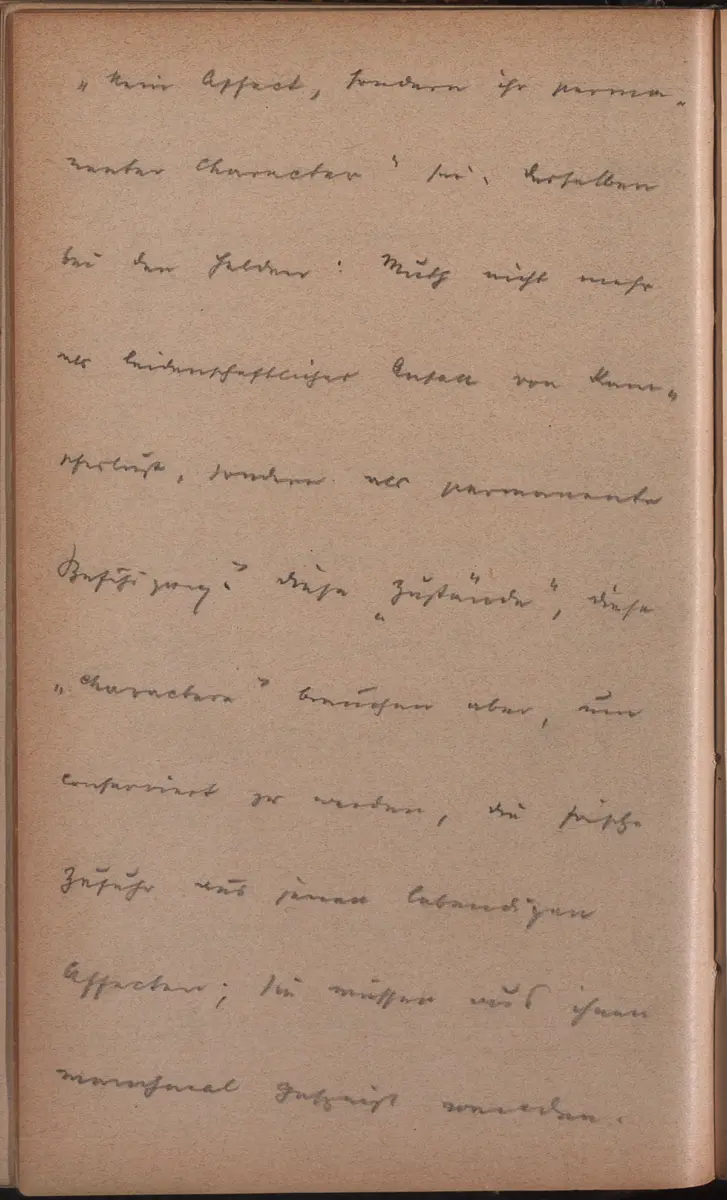 „kein Affect, sondern ihr perma„
nenter Character“ sei. Desselben
bei den Helden: Muth nicht mehr
als leidenschaftlicher Anfall von Käm„
pferlust, sondern als permanente
diese „Zustände“, diese
„Charactere“ brauchen aber, um
conserviert zu werden, die frische
Zufuhr aus jenen lebendigen
Affecten; sie müssen aus ihnen
manchmal gespeist werden.